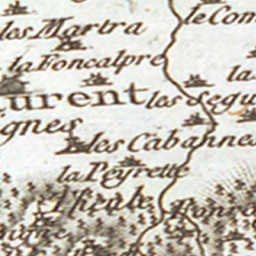 le Com
les Martra
la Foncalpre
la
urent les Segu
ignes
les Cabannes
la Peyrette